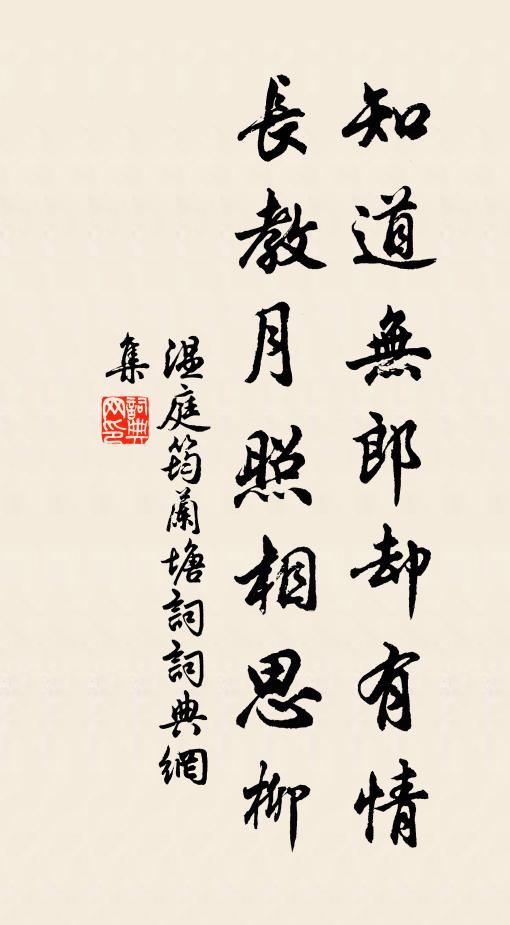 知道無郎却有情
長教月照相思柳
温庭筠蘭塘詞詞典網
集
詞典网印